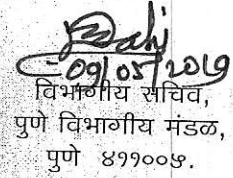 09/05/2019
विभागीय सचिव,
पुणे विभागीय मंडळ,
पुणे ४११००५.